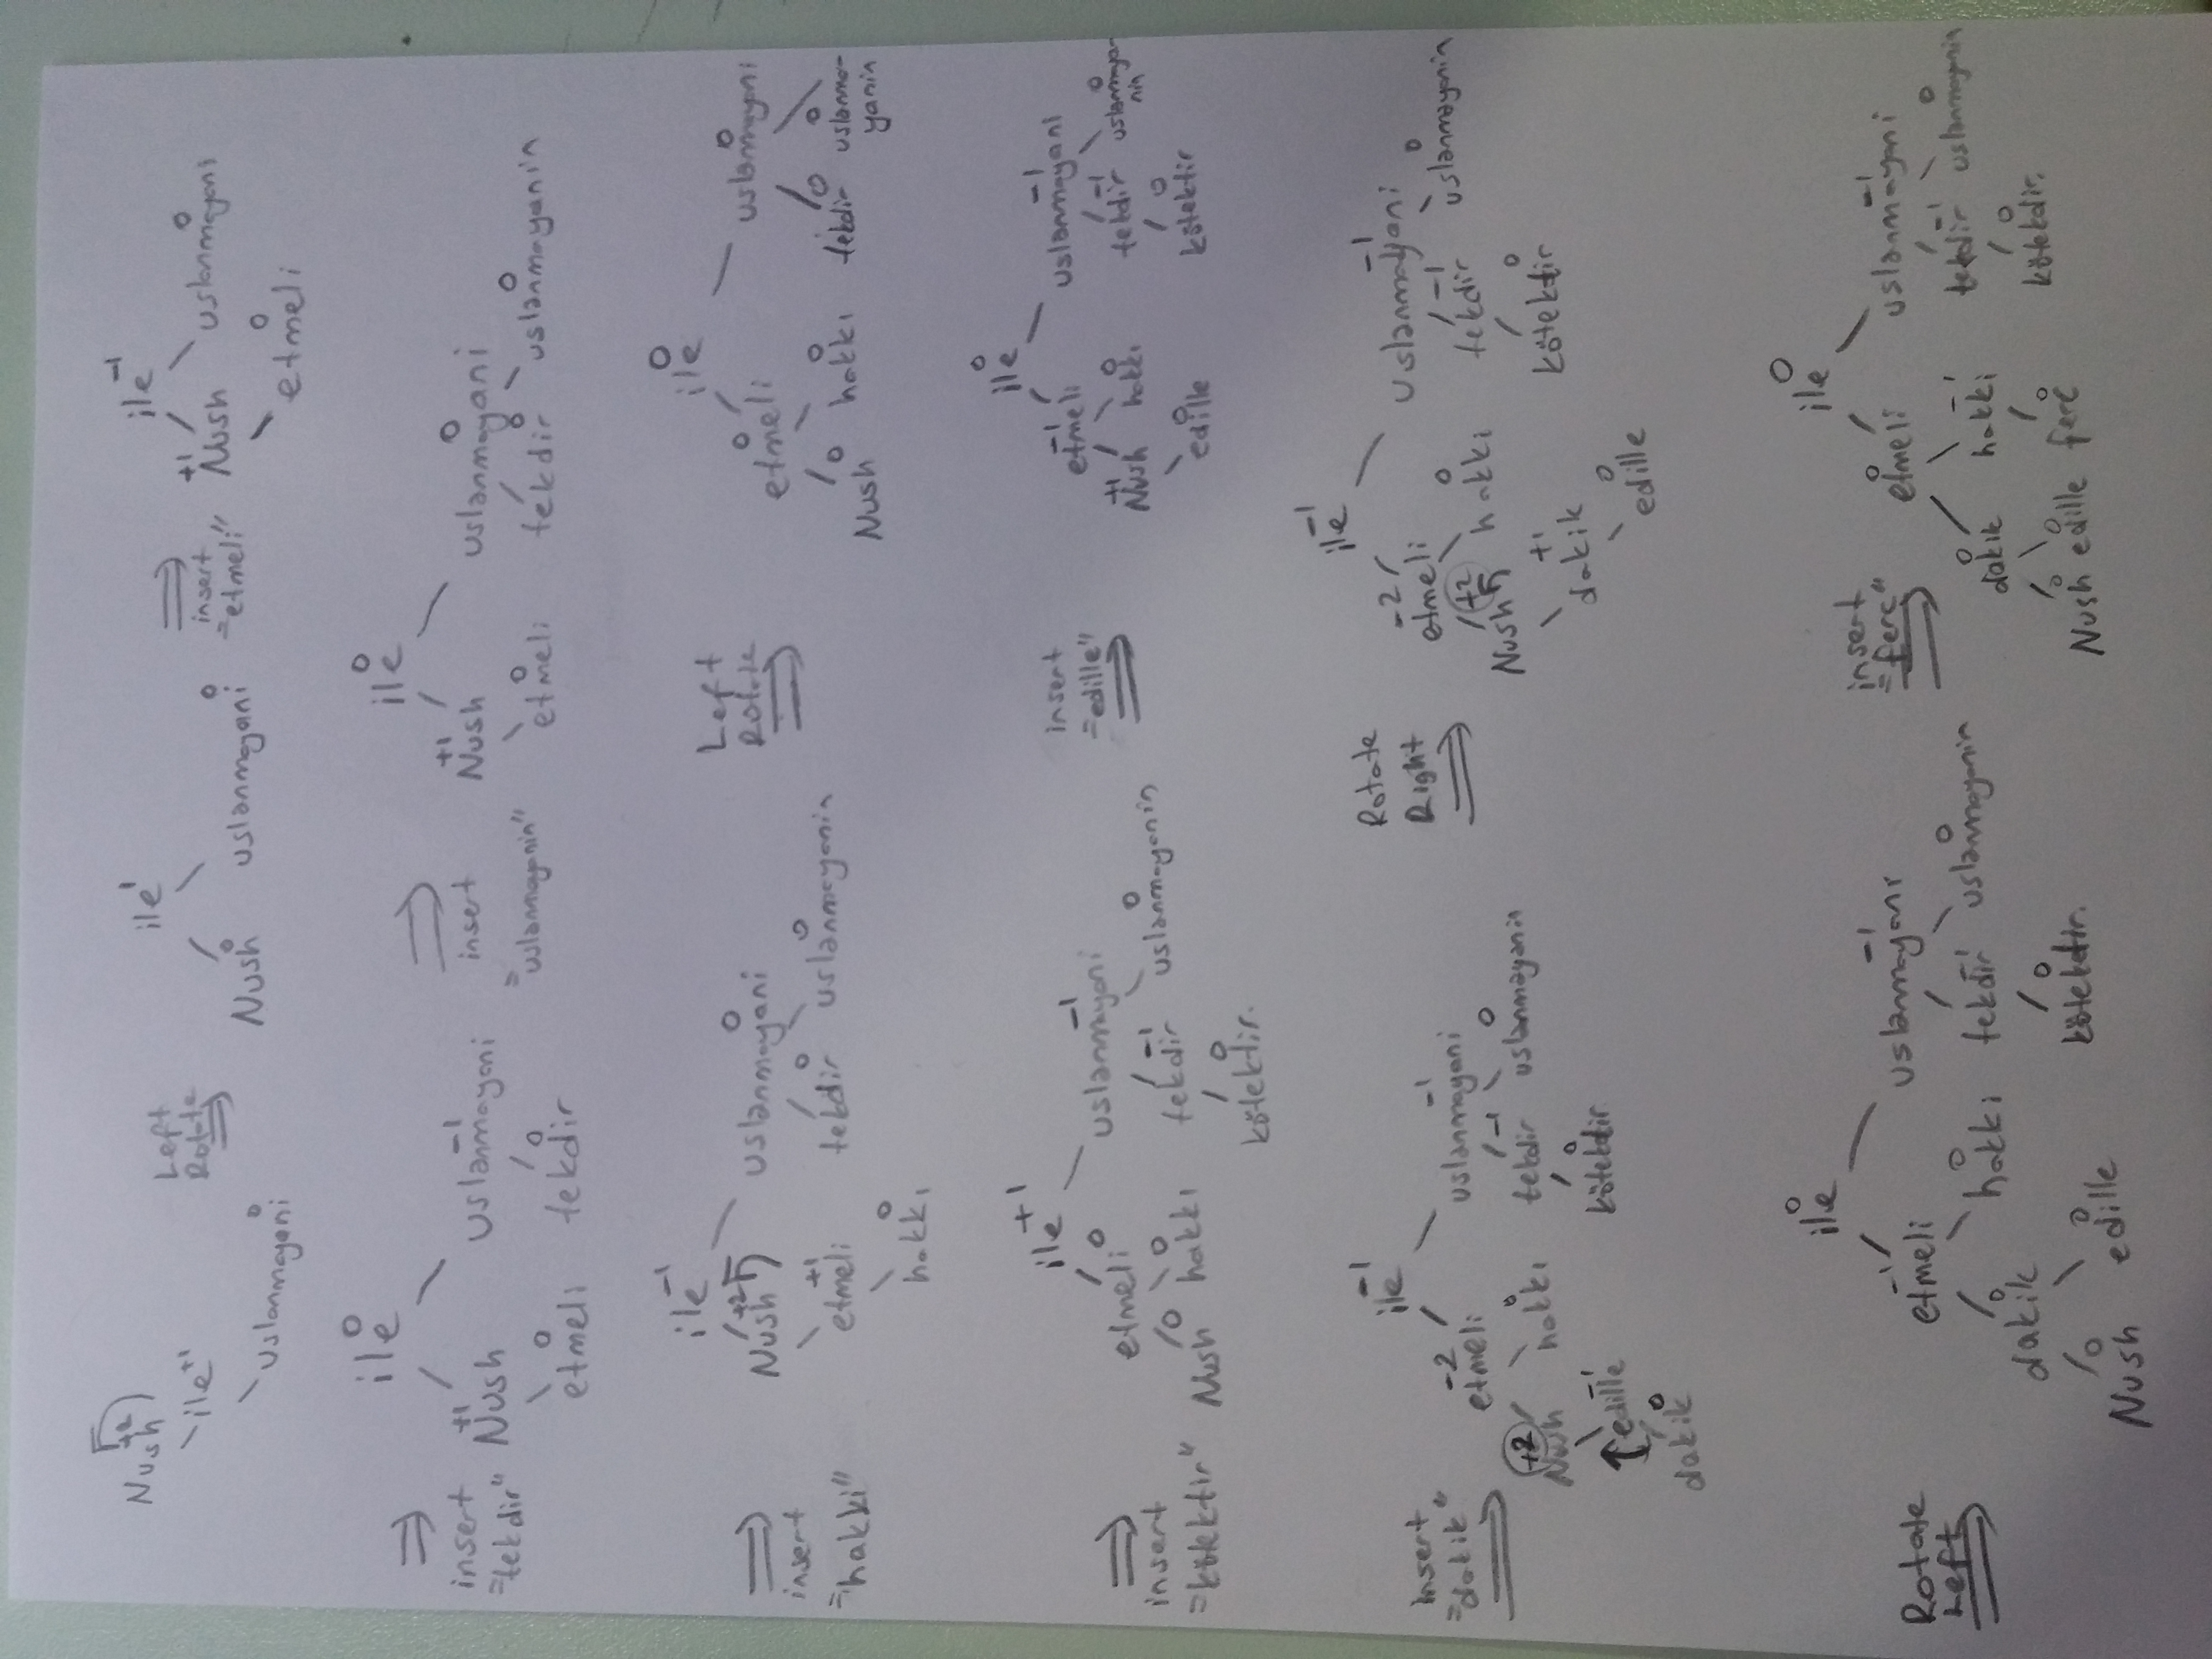 Nush +2
ile +1
uslanmayani 0
Left
Rotate
ile 1
Nush 0 uslanmayani 0
insert
"etmeli"
ile -1
+1 Nush uslanmayani 0
etmeli 0
insert
"tekdir"
ile 0
+1 Nush uslanmayani -1
etmeli 0 tekdir 0
insert
"uslanmayanin"
ile 0
+1 Nush uslanmayani 0
etmeli 0 tekdir 0 uslanmayanin 0
insert
"hakki"
ile -1
Nush +2 uslanmayani 0
etmeli +1 tekdir 0 uslanmayanin 0
hakkı 0
Left
Rotate
ile 0
etmeli 0 uslanmayani 0
Nush 0 hakkı 0 tekdir 0 uslanma-
yanin 0
insert
"kötektir"
ile +1
etmeli 0 uslanmayani -1
Nush 0 hakkı 0 tekdir -1 uslanmayanin 0
kötektir. 0
insert
"edille"
ile 0
etmeli -1 uslanmayani -1
Nush +1 hakkı 0 tekdir -1 uslanmaya-
nin 0
edille kötektir 0
insert
"dakik"
ile -1
-2 etmeli uslanmayani -1
+2 Nush hakkı 0 tekdir -1 uslanmayanin 0
edille -1 kötekdir 0
dakik 0
Rotate
Right
ile -1
-2 etmeli uslanmayani -1
Nush +2 hakkı 0 tekdir -1 uslanmayanin 0
dakik +1 kötektir 0
edille 0
Rotate
Left
ile 0
etmeli -1 uslanmayani -1
dakik 0 hakkı 0 tekdir -1 uslanmayanin 0
Nush 0 edille 0 kötekdir. 0
insert
"ferç"
ile 0
etmeli 0 uslanmayani -1
dakik 0 hakki -1 tekdir -1 uslanmayanin 0
Nush 0 edille 0 ferc 0 kötekdir. 0